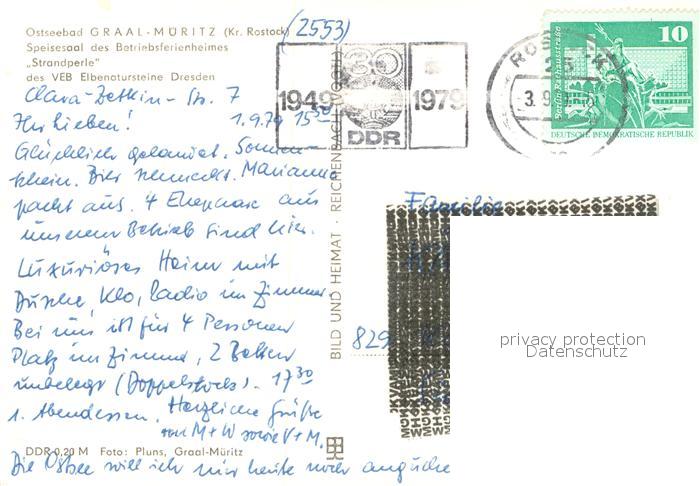 Ostseebad GRAAL-MÜRITZ (Kr. Rostock) (2553)
Speisesaal des Betriebsferienheimes
„Strandperle"
des VEB Elbenatursteine Dresden
Clara-Zetkin-Str. 7
Ihr Lieben! 1.9.79 15³⁰
Glücklich gelandet. Sonnen-
schein. Bier schmeckt. Marianne
packt aus. 4 Ehepaare aus
unserem Betrieb sind hier.
Luxuriöses Heim mit
Dusche, Klo, Radio im Zimmer
Bei uns ist für 4 Personen
Platz im Zimmer, 2 Betten
unbelegt (Doppelstock). 17³⁰
1. Abendessen. Herzliche Grüße
von M+W sowie V+M.
DDR 0,20 M Foto: Pluns, Graal-Müritz
Die Ostsee will ich mir heute noch angucken
BILD UND HEIMAT · REICHENBACH (VOGTL)
1949 30 1979
DDR
3.9.
10
DEUTSCHE DEMOKRATISCHE REPUBLIK
Familie
829
privacy protection
Datenschutz